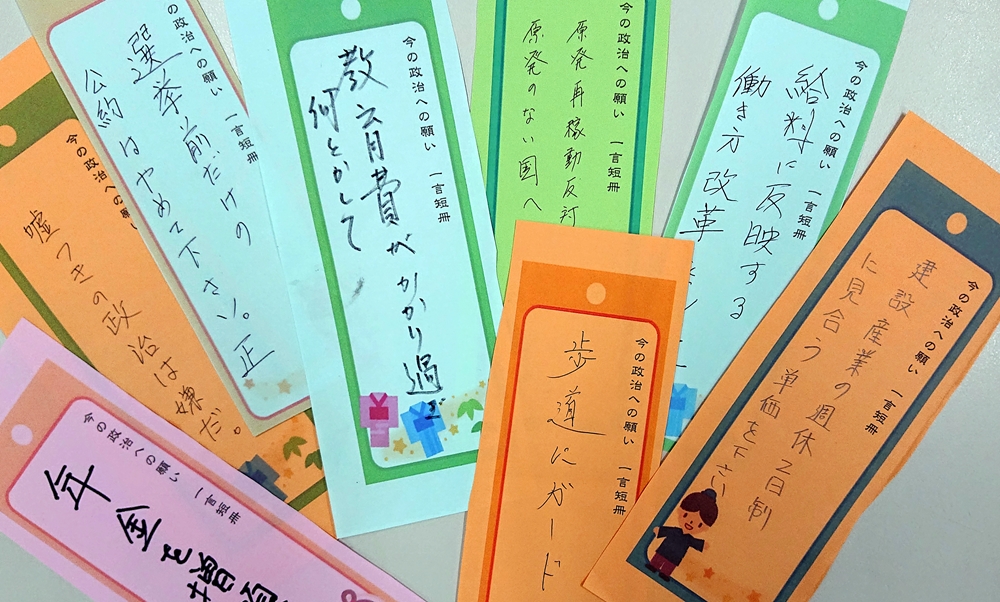 今の政治への願い 一言短冊
嘘つきの政治は嫌だ。
の政治への願い 一言短冊
選挙前だけの
公約はやめて下さい。正
今の政治への願い 一言短冊
教育費がかかり過
何とかして
今の政治への願い 一言短冊
原発再稼動反対
原発のない国へ
今の政治への願い 一言短冊
給料に反映する
働き方改革
今の政治への願い 一言短冊
建設産業の週休2日制
に見合う単価を下さい
今の政治への願い 一言短冊
歩道にガード
今の政治への願い 一言短冊
年金を増